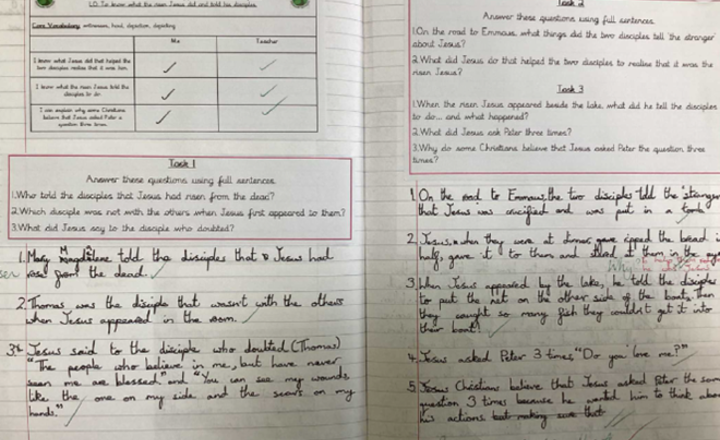 L.O. To know what the risen Jesus did and told his disciples.
Core Vocabulary: witnesses, heal, dejection, dejectedly
Me Teacher
I know what Jesus did that helped the
two disciples realise that it was him.
I know what the risen Jesus told the
disciples to do.
I can explain why some Christians
believe that Jesus asked Peter a
question three times.
Task 1
Answer these questions using full sentences.
1.Who told the disciples that Jesus had risen from the dead?
2.Which disciple was not with the others when Jesus first appeared to them?
3.What did Jesus say to the disciple who doubted?
1. Mary Magdalene told the disiples that Jesus had
rose from the dead.
2. Thomas was the disciple that wasn't with the others
when Jesus appeared in the room.
3. Jesus said to the disciple who doubted (Thomas)
"The people who believe in me, but have never
seen me are blessed" and "You can see my wounds,
like the one on my side and the scars on my
hands."
Task 2
Answer these questions using full sentences.
1.On the road to Emmaus, what things did the two disciples tell 'the stranger'
about Jesus?
2.What did Jesus do that helped the two disciples to realise that it was the
risen Jesus?
Task 3
1.When the risen Jesus appeared beside the lake, what did he tell the disciples
to do... and what happened?
2.What did Jesus ask Peter three times?
3.Why do some Christians believe that Jesus asked Peter the question three
times?
1. On the road to Emmaus, the two disciples told the 'stranger
that Jesus was crucified and was put in a tomb.
2. Jesus, when they were at dinner, gave ripped the bread in
half, gave it to them and stared at them in the eyes
3. When Jesus appeared by the lake, he told the disciples
to put the net on the other side of the boats. Then
they caught so many fish they couldn't get it into
their boat!
4. Jesus asked Peter 3 times, "Do you love me?"
5. Some Christians believe that Jesus asked Peter the same
question 3 times because he wanted him to think about
his actions but making sure that